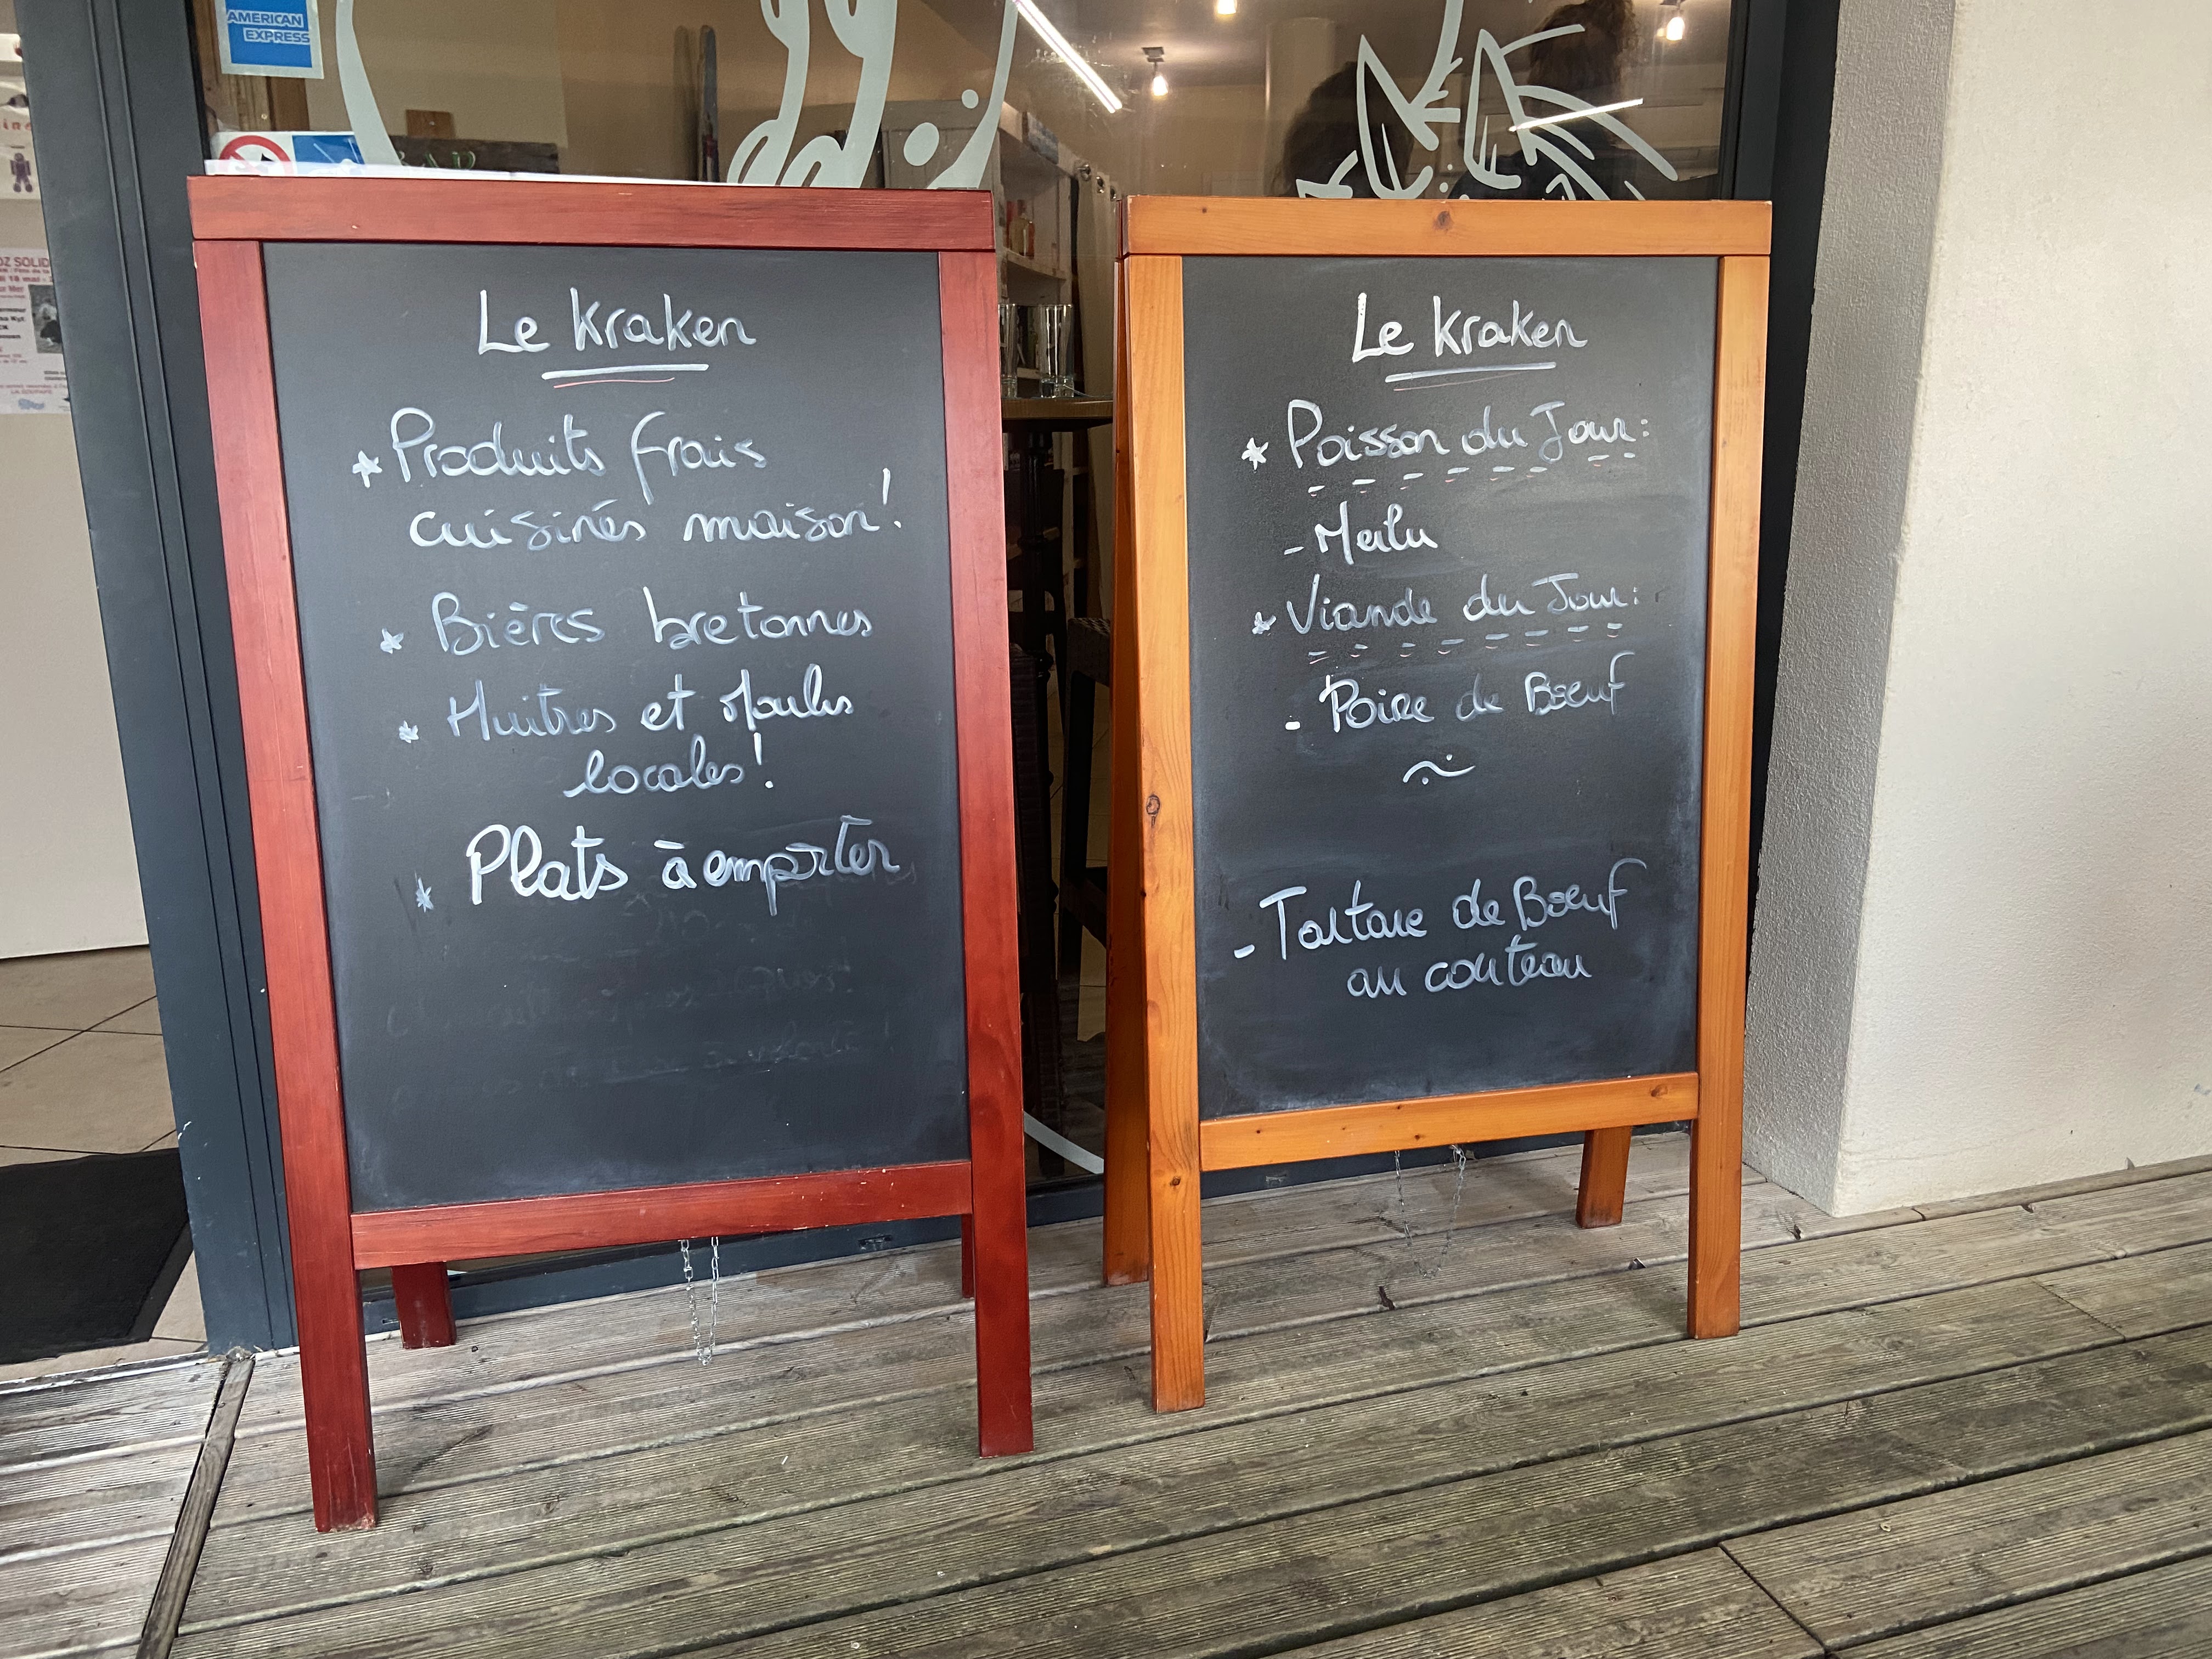 AMERICAN
EXPRESS
Le Kraken
* Produits frais
cuisinés maison!
* Bières bretonnes
* Huitres et Moules
locales!
* Plats à emporter
Le Kraken
* Poisson du Jour:
- Merlu
* Viande du Jour:
- Poire de Bœuf
~
- Tartare de Bœuf
au couteau